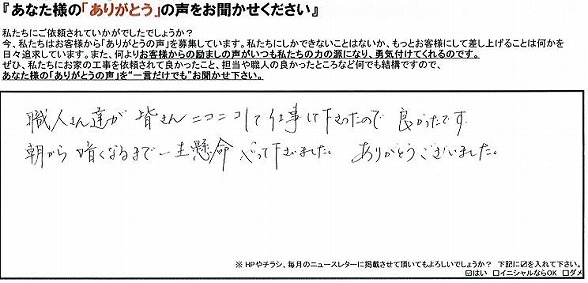 『あなた様の「ありがとう」の声をお聞かせください』
私たちにご依頼されていかがでしたでしょうか？
今、私たちはお客様から「ありがとうの声」を募集しています。私たちにしかできないことはないか、もっとお客様にして差し上げることは何かを
日々追求しています。また、何よりお客様からの励ましの声がいつも私たちの力の源になり、勇気付けてくれるのです。
ぜひ、私たちにお家の工事を依頼されて良かったこと、担当や職人の良かったところなど何でも結構ですので、
あなた様の「ありがとうの声」を“一言だけでも”お聞かせ下さい。
職人さん達が 皆さんニコニコして仕事して下さったので 良かったです。
朝から 暗くなるまで一生懸命 やって下さいました。 ありがとうございました。
※ HPやチラシ、毎月のニュースレターに掲載させて頂いてもよろしいでしょうか？ 下記に☑を入れて下さい。
☑はい □イニシャルならOK □ダメ